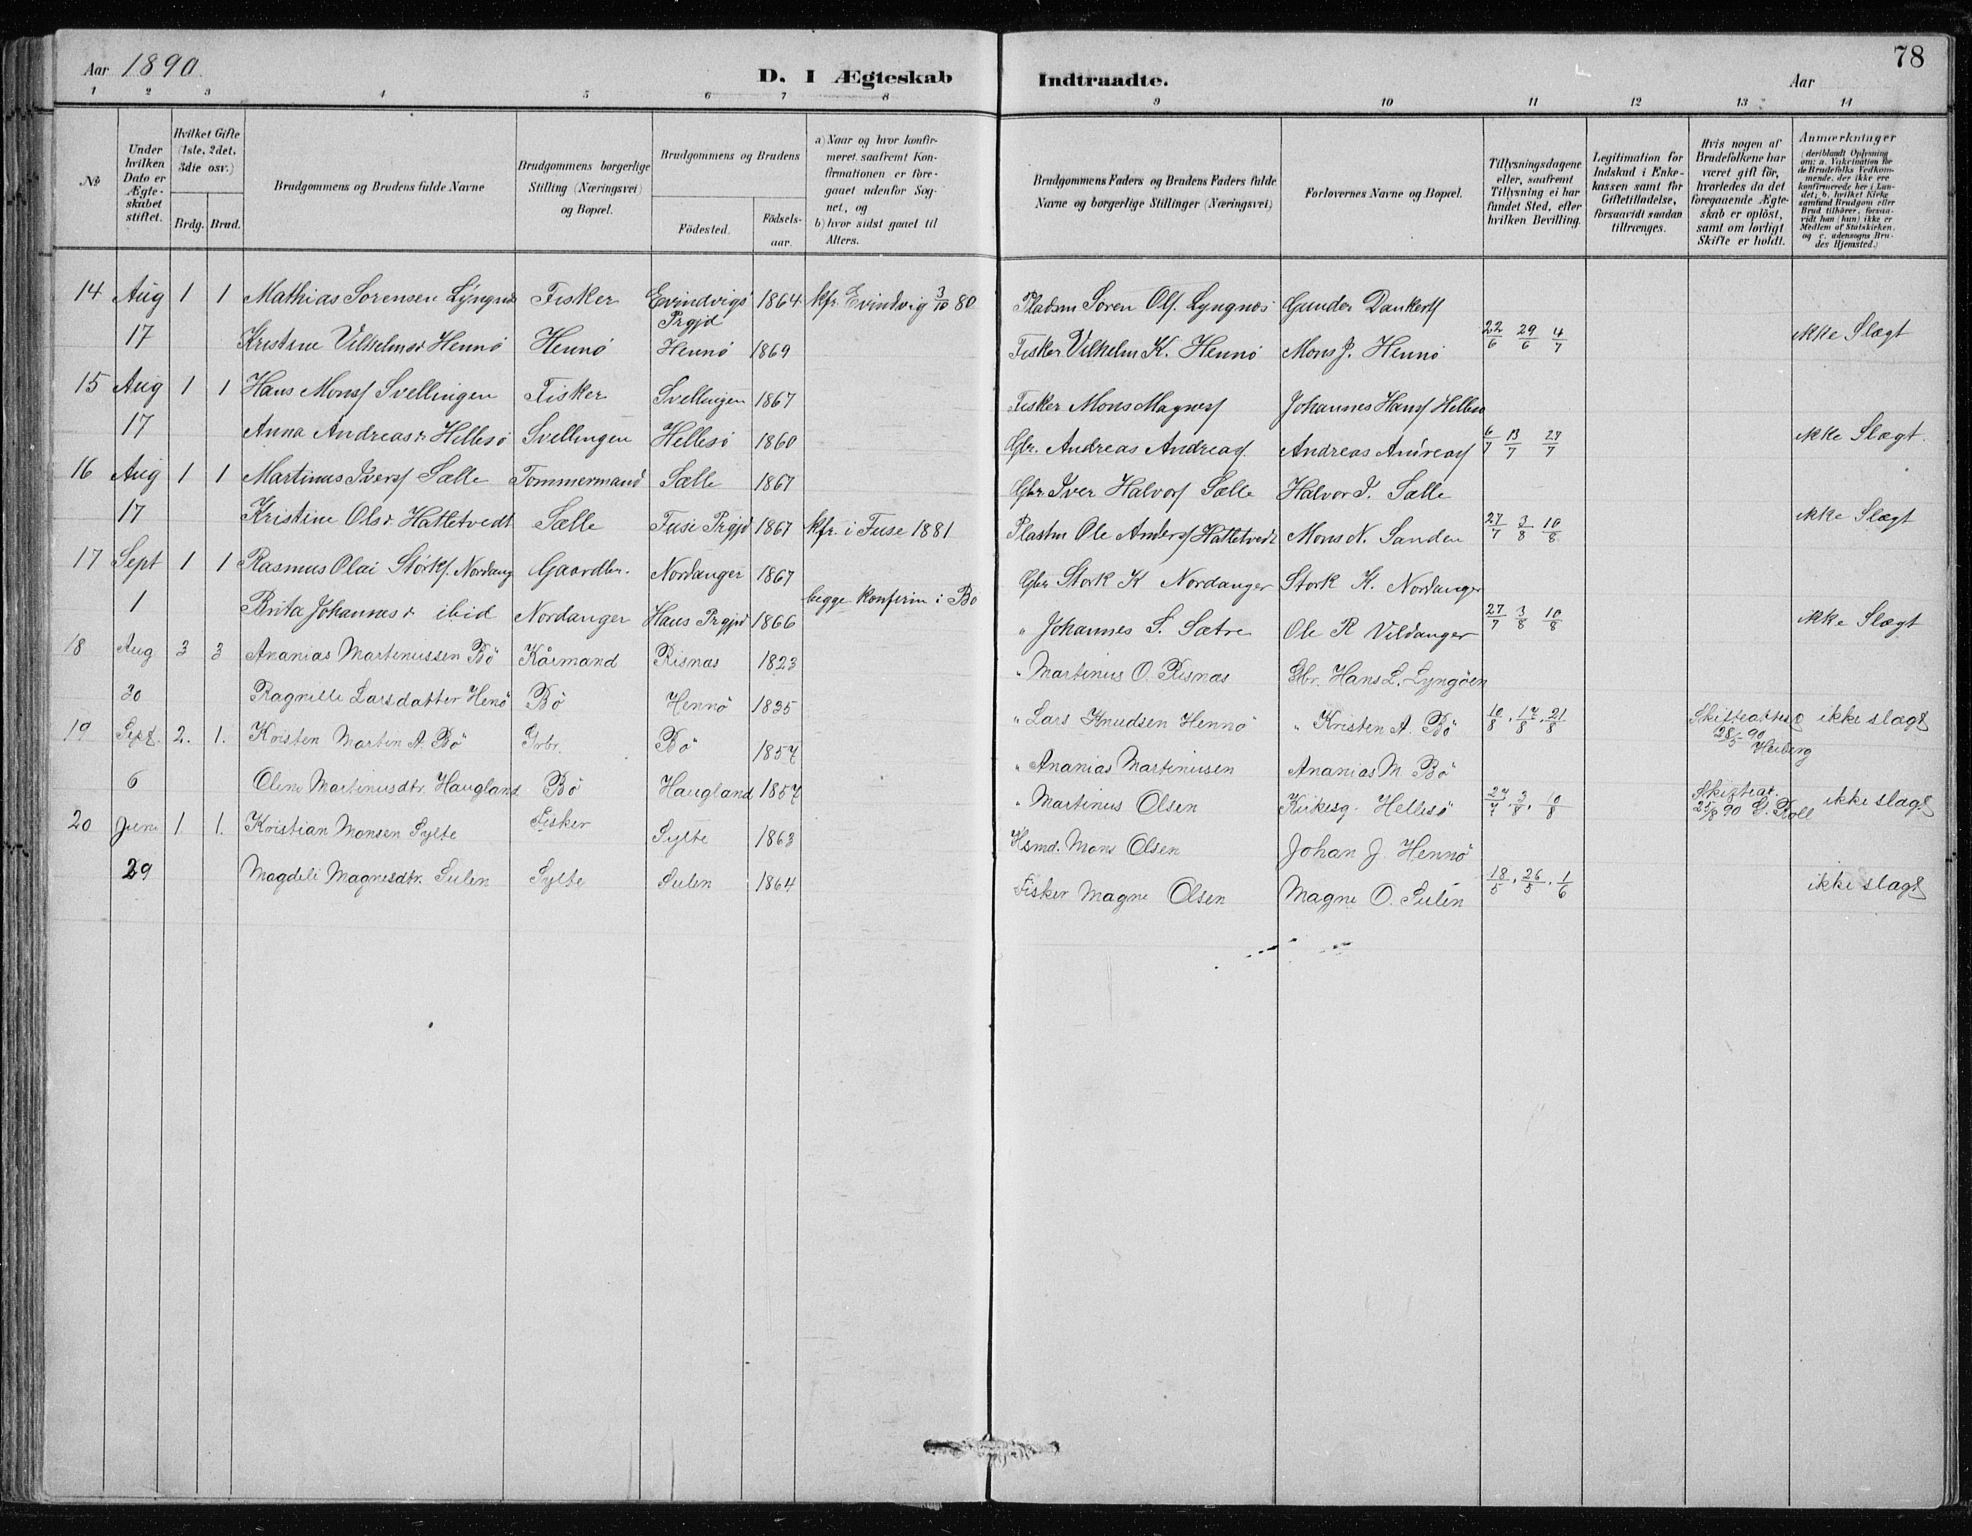 Aar 1890. D. I Ægteskab Indtraadte. Aar 78
1 2 3 4 5 6 7 8 9 10 11 12 13 14
№
Under hvilken Dato er Ægteskabet stiftet.
Hvilket Gifte (1ste, 2det, 3die osv.)
Brdg. Brud.
Brudgommens og Brudens fulde Navne
Brudgommens borgerlige Stilling (Næringsvei) og Bopæl.
Brudgommens og Brudens
Födested. Födselsaar.
a) Naar og hvor konfirmeret, saafremt Konfirmationen er foregaaet udenfor Sognet, og
b) hvor sidst gaaet til Alters.
Brudgommens Faders og Brudens Faders fulde Navne og borgerlige Stillinger (Næringsvei)
Forlovernes Navne og Bopæl.
Tillysningsdagene eller, saafremt Tillysning ei har fundet Sted, efter hvilken Bevilling.
Legitimation for Indskud i Enkekassen samt for Giftetilladelse, forsaavidt saadan tiltrænges.
Hvis nogen af Brudefolkene har været gift før, hvorledes da det foregaaende Ægteskab er oplöst, samt om lovligt Skifte er holdt.
Anmærkninger (deriblandt Oplysning om: a. Vakcination for de Brudefolks Vedkommende, der ikke ere konfirmerede her i Landet; b. hvilket Kirkesamfund Brudgom eller Brud tilhörer, forsaavidt han (hun) ikke er Medlem af Statskirken, og c. udensogns Brudes Hjemsted.)
14 Aug 1 1 Mathias Sørensen Lyngnæs Fisker Evindvigs Prgjd 1864 kfr. Evindvig 3/10 80 Pladsm Søren Ols. Lyngnæs Gunder Dankerts
17 Kristine Vilhelmsd. Hennö Hennö Hennö 1869 Fisker Vilhelm K. Hennö Mons J. Hennö 22/6 29/6 4/7 ikke Slægt
15 Aug 1 1 Hans Mons. Svellingen Fisker Svellingen 1867 Fisker Mons Magnes. Johannes Hans. Hellesö
17 Anna Andreasd. Hellesö Svellingen Hellesö 1860 Gbr. Andreas Andreas. Andreas Andreas. 6/7 13/7 27/7 ikke Slægt.
16 Aug 1 1 Martinus Ivers. Sælle Tømmermand Sælle 1867 Gbr Iver Halvors. Sælle Halvor I. Sælle
17 Kristine Olsd. Hattetvedt Sælle Fuse Prgjd 1867 kfr. i Fuse 1881 Pladsm Ole Anders. Hattetvedt Mons N. Sanden 27/7 3/8 10/8 ikke Slægt
17 Sept 1 1 Rasmus Olai Størks. Nordang Gaardbr. Nordanger 1867 Gbr Størk K Nordanger Størk K. Nordanger
begge konfirm i Bø
1 Brita Johannesd. ibid Nordanger Haus Prgjd 1866 " Johannes S. Sætre Ole R Vildanger 27/7 3/8 10/8 ikke Slægt
18 Aug 3 3 Ananias Martinussen Bö Kårmand Risnæs 1823 " Martinus O. Risnæs Gbr. Hans L. Lyngöen
30 Ragnille Larsdatter Henö Bö Hennö 1835 " Lars Knudsen Hennö " Kristen A. Bö 10/8, 17/8, 21/8 Skifteattest 28/5 90 Heiberg ikke slægt
19 Sept. 2. 1. Kristen Martin A. Bö Grbr. Bö 1857 " Ananias Martinusen Ananias M. Bö
6 Oline Martinusdtr. Haugland Bö Haugland 1857 " Martinus Olsen Kirkesg. Hellesö 27/7, 3/8, 10/8 Skifteat. 21/8 90 G. Koll ikke slægt
20 Juni 1. 1. Kristian Monsen Sylte Fisker Sylte 1863 Hsmd. Mons Olsen Johan J Hennö
29 Magdeli Magnesdtr. Sulen Sylte Sulen 1864 Fisker Magne Olsen Magne O. Sulen 18/5, 26/5, 1/6 ikke slægt